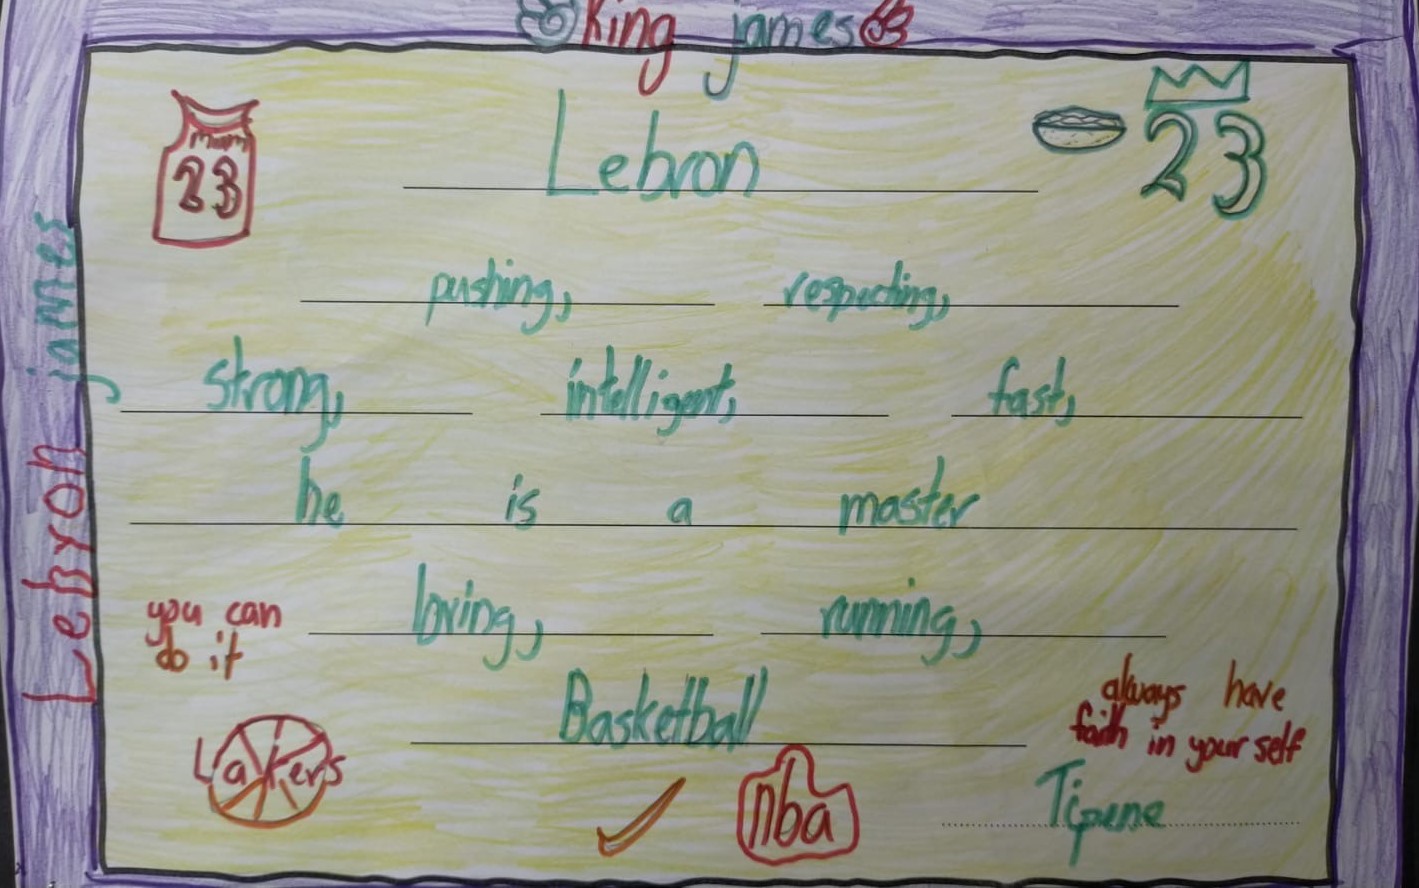 King james
Lebron
23
23
pushing, respecting,
strong, intelligent, fast,
he is a master
loving, running,
Basketball
you can
do it
always have
faith in your self
Lakers
nba
Tipene
Lebron james